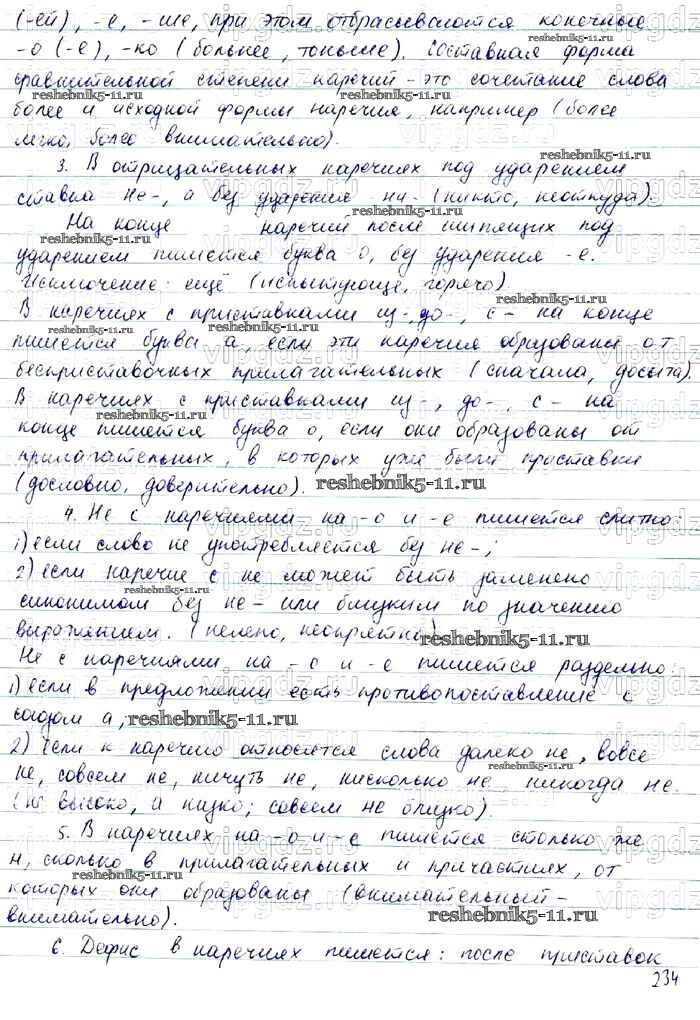 (-ей), -е, -ше, при этом отбрасываются конечные
-о (-е), -ко (больнее, тоньше). Составная форма
сравнительной степени наречий - это сочетание слова
более и исходной формы наречия, например (более
легко, более внимательно).
3. В отрицательных наречиях под ударением
ставим не-, а без ударения ни- (никто, неоткуда).
На конце наречий после шипящих под
ударением пишется буква о, без ударения -е.
Исключение: ещё (испытующе, горячо)
В наречиях с приставками из-, до-, с- на конце
пишется буква а, если эти наречия образованы от
бесприставочных прилагательных (сначала, досыта).
В наречиях с приставками из-, до-, с- на
конце пишется буква о, если они образованы от
прилагательных, в которых уже были приставки
(дословно, доверительно).
4. Не с наречиями на -о и -е пишется слитно:
1) если слово не употребляется без не-;
2) если наречие с не может быть заменено
синонимом без не- или близким по значению
выражением. (нелепо, неопрятно)
Не с наречиями на -о и -е пишется раздельно:
1) если в предложении есть противопоставление с
союзом а;
2) если к наречию относятся слова далеко не, вовсе
не, совсем не, ничуть не, нисколько не, никогда не.
(не высоко, а низко; совсем не близко).
5. В наречиях на -о и -е пишется столько же
н, сколько в прилагательных и причастиях, от
которых они образованы (внимательный -
внимательно).
6. Дефис в наречиях пишется: после приставок
234
reshebnik5-11.ru
vipgdz.ru